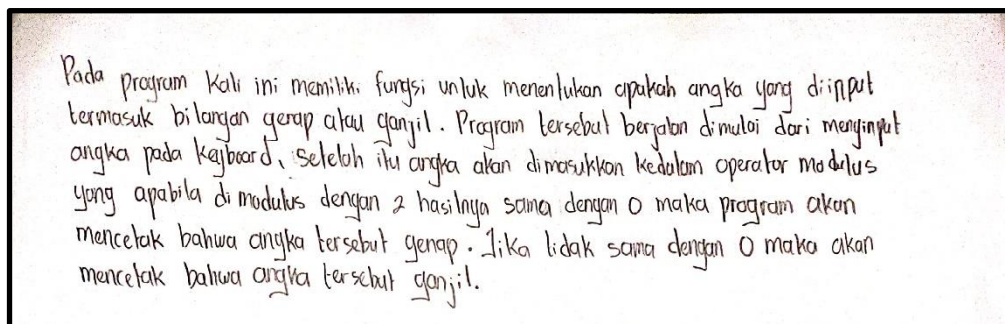 Pada program kali ini memiliki fungsi untuk menentukan apakah angka yang diinput
termasuk bilangan genap atau ganjil. Program tersebut berjalan dimulai dari menginput
angka pada keyboard, setelah itu angka akan dimasukkan kedalam operator modulus
yang apabila di modulus dengan 2 hasilnya sama dengan 0 maka program akan
mencetak bahwa angka tersebut genap. Jika tidak sama dengan 0 maka akan
mencetak bahwa angka tersebut ganjil.